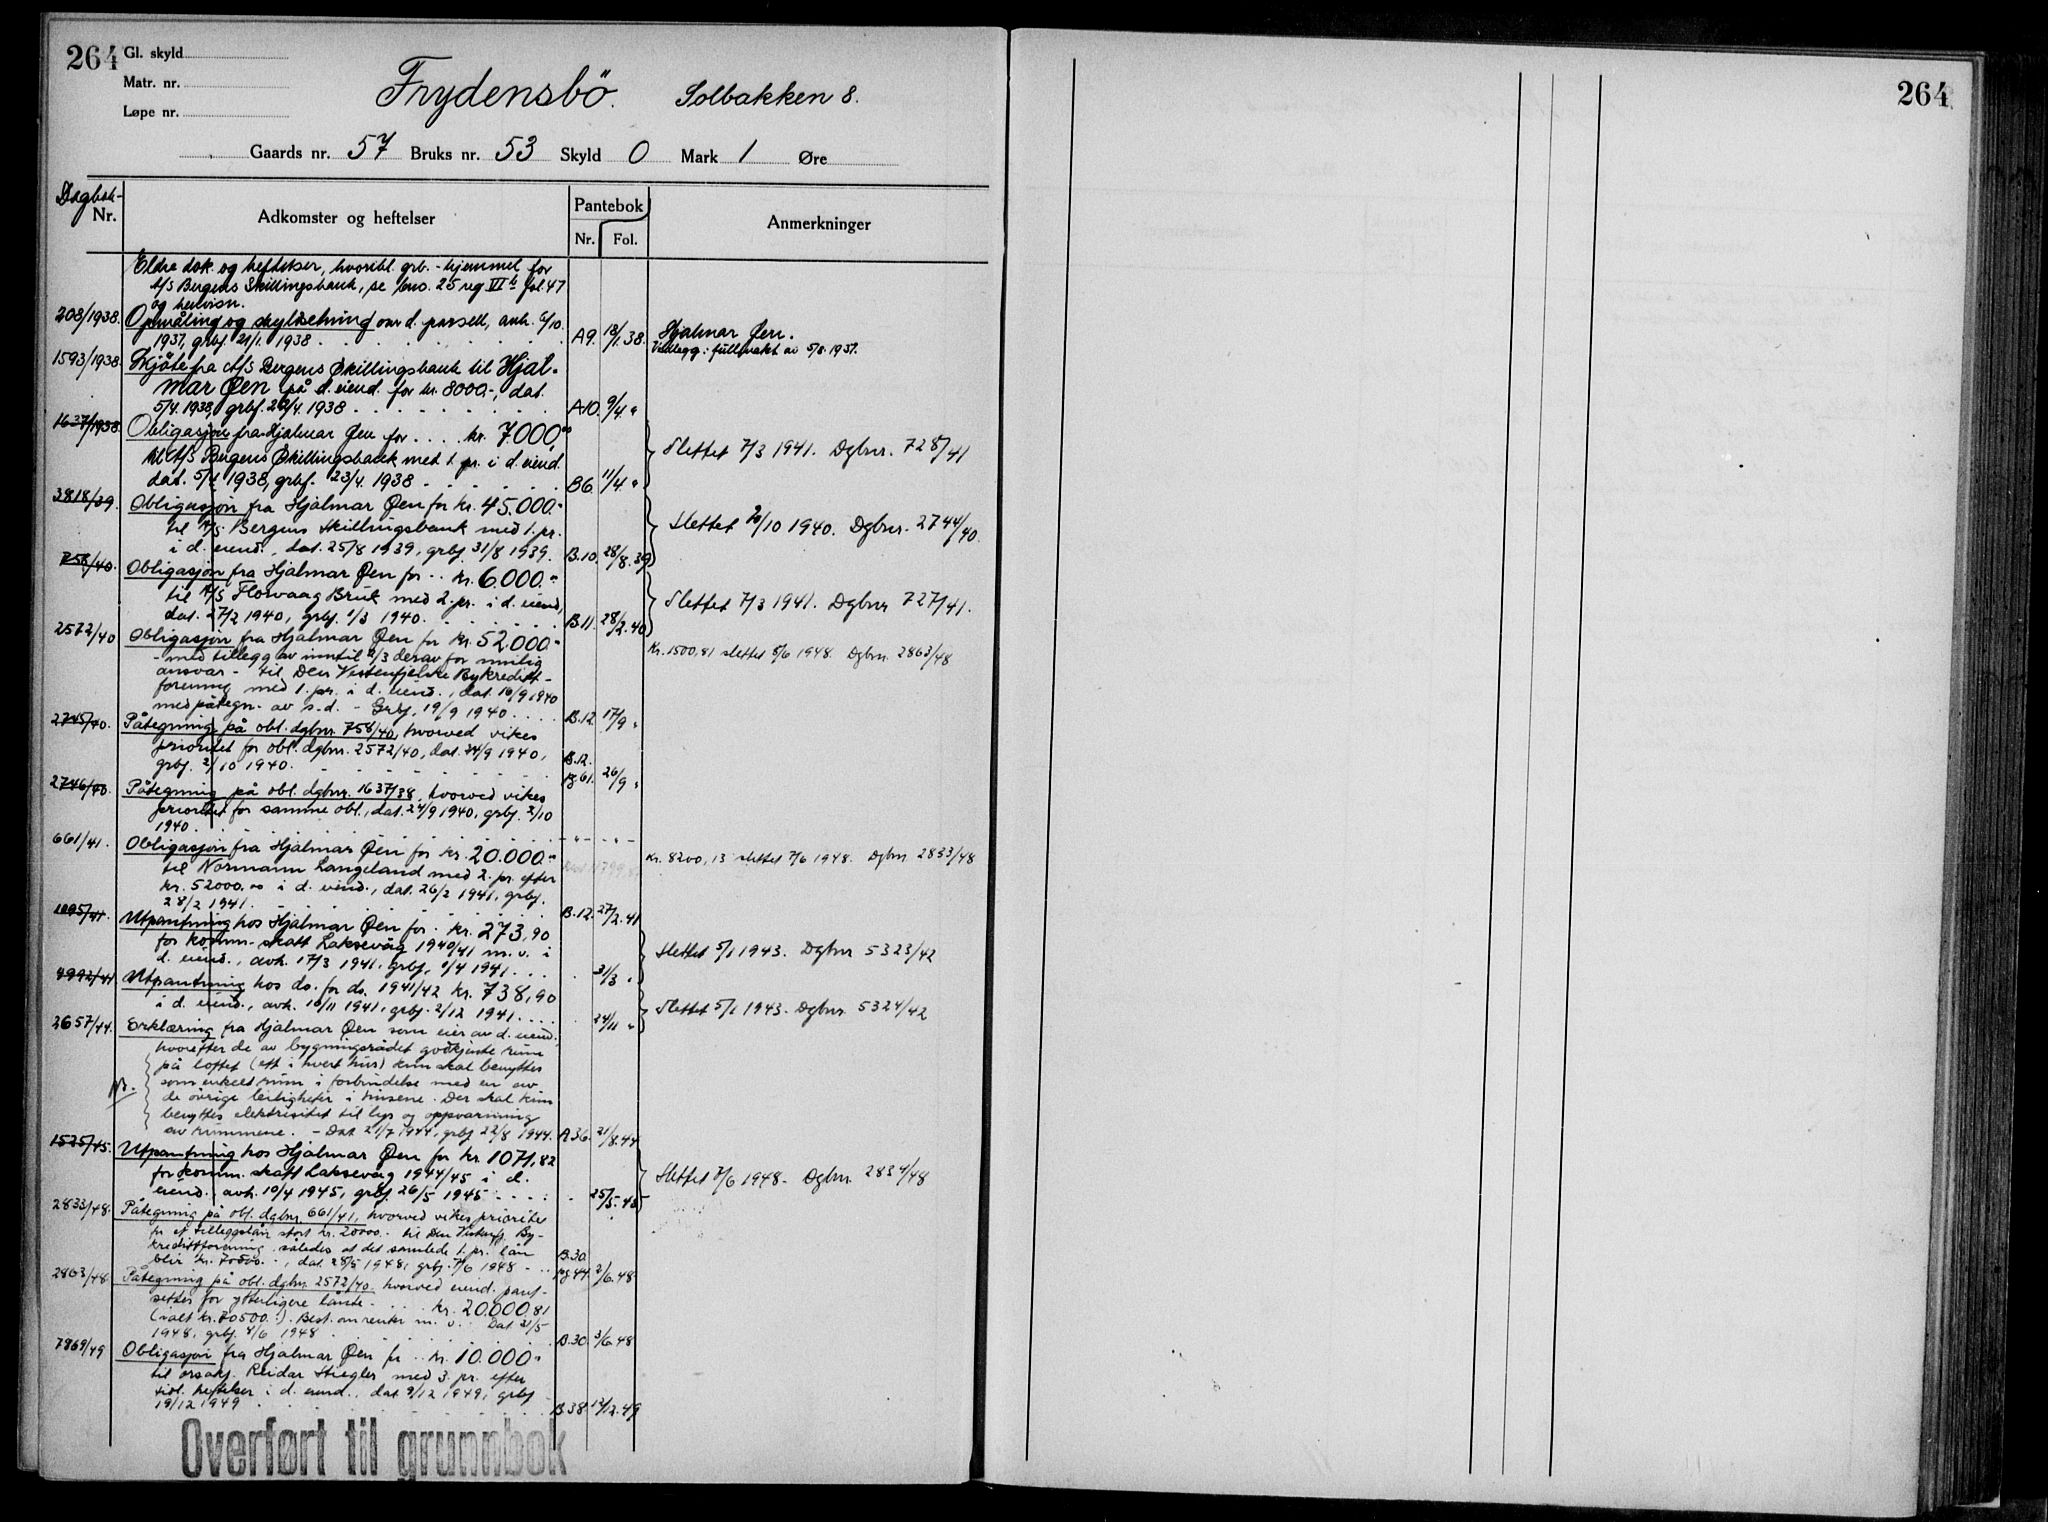 264
264
Gl. skyld
Matr. nr.
Løpe nr.
Frydensbö. Solbakken 8.
Gaards nr. 57 Bruks nr. 53 Skyld 0 Mark 1 Øre
Dagbok-
Nr.
Adkomster og heftelser
Pantebok
Nr. Fol.
Anmerkninger
Eldre dok. og heftelser, hvoribl. grb.-hjemmel for
A/S Bergens Skillingsbank, se bno. 25 reg VI b fol. 47
og henvisn.
208/1938. Opmåling og skyldsetning over d. parsell, avh. 6/10.
1937, grbf. 21/1. 1938 A9. 18/1. 38. Hjalmar Øen.
Vedlegg: fullmakt av 5/8. 1937.
1593/1938. Skjøte fra A/S Bergens Skillingsbank til Hjal-
mar Øen på d. eiend. for kr. 8000.-, dat.
5/4. 1938, grbf. 22/4. 1938 A10. 9/4. "
1637/1938. Obligasjon fra Hjalmar Øen for .... kr. 7000,00
til A/S Bergens Skillingsbank med 1. pr. i d. eiend.
dat. 5/4 1938, grbf. 23/4. 1938 B6. 11/4. "
Slettet 7/3 1941. Dgbnr. 728/41
3818/39. Obligasjon fra Hjalmar Øen for kr. 45.000.-
til A/S Bergens Skillingsbank med 1. pr.
i d. eiend., dat. 25/8 1939, grbf 31/8 1939. B.10. 28/8.39
Slettet 2/10 1940. Dgbnr. 2744/40.
758/40. Obligasjon fra Hjalmar Øen for .. kr. 6.000.-
til A/S Florvaag Bruk med 2. pr. i d. eiend,
dat. 27/2 1940, grbf 1/3 1940. B.11. 28/2.40
Slettet 7/3 1941. Dgbnr 727/41.
2572/40 Obligasjon fra Hjalmar Øen for kr. 52.000.-
- med tillegg av inntil 2/3 derav for mulig
ansvar - til Den Vestenfjelske Bykreditt-
forening med 1. pr. i d. eiend., dat. 10/9 1940
med påtegn. av s.d. - Grbf. 19/9 1940. B.12. 17/9 "
Kr. 1500,81 slettet 5/6 1948. Dgbnr. 2863/48
2745/40. Påtegning på obl. dgbnr. 758/40, hvorved vikes
prioritet for obl. dgbnr. 2572/40, dat. 24/9 1940,
grbf. 2/10 1940. B.12. pg 61. 26/9 "
2746/40. Påtegning på obl. dgbnr. 1637/38, hvorved vikes
prioritet for samme obl., dat. 24/9 1940, grbf. 2/10
1940. - " - - " -
661/41. Obligasjon fra Hjalmar Øen for kr. 20.000.-
til Normann Langeland med 2. pr. efter
kr. 52000.00 i d. eiend., dat. 26/2 1941, grbf.
28/2 1941. B.12. 27/2.41
Kr. 8200,13 slettet 7/6 1948. Dgbnr. 2833/48
1095/41. Utpantning hos Hjalmar Øen for . kr. 273,90
for komm. skatt Laksevåg 1940/41 m.v. i
d. eiend., avh. 17/3 1941, grbf. 1/4 1941. 31/3 "
Slettet 5/1 1943. Dgbnr 5323/42
4992/41 Utpantning hos do. for do. 1941/42 kr. 738,90
i d. eiend., avh. 10/11 1941, grbf. 2/12 1941. 24/11 "
Slettet 5/1 1943. Dgbnr 5324/42
2657/44. Erklæring fra Hjalmar Øen som eier av d. eiend,
hvorefter de av bygningsrådet godkjente rum
på loftet (ett i hvert hus) kun skal benyttes
som enkelt rum i forbindelse med en av
de øvrige leiligheter i husene. Der skal kun
benyttes elektrisitet til lys og oppvarming
av rummene. - Dat 21/7 1944, grbf 22/8 1944. A36. 21/8.44
NB.
1525/45. Utpantning hos Hjalmar Øen for kr. 1071,82
for komm. skatt Laksevåg 1944/45 i d.
eiend. avh. 10/4 1945, grbf. 26/5 1945 25/5.45
Slettet 7/6 1948. Dgbnr. 2834/48
2833/48. Påtegning på obl. dgbnr. 661/41, hvorved vikes prioritet
for et tilleggslån stort kr. 20000.- til Den Vestenfj. By-
kredittforening, således at det samlede 1. pr. lån
blir kr. 70500.-, dat. 28/5 1948, grbf. 7/6 1948 B.30. pg 44. 2/6.48
2863/48 Påtegning på obl. dgbnr 2572/40, hvorved eiend. pant-
settes for ytterligere lånte .... kr. 20.000,81
(ialt kr. 70500.-). Best. om renter m. v. Dat 31/5
1948, grbf. 8/6 1948 B.30. 3/6.48
7869/49 Obligasjon fra Hjalmar Øen for .. kr. 10.000.-
til orsakf. Reidar Stiegler med 3. pr. efter
tidl. heftelser i d. eiend., dat 9/12 1949, grbf
19/12 1949 B.38 14/12.49
Overført til grunnbok